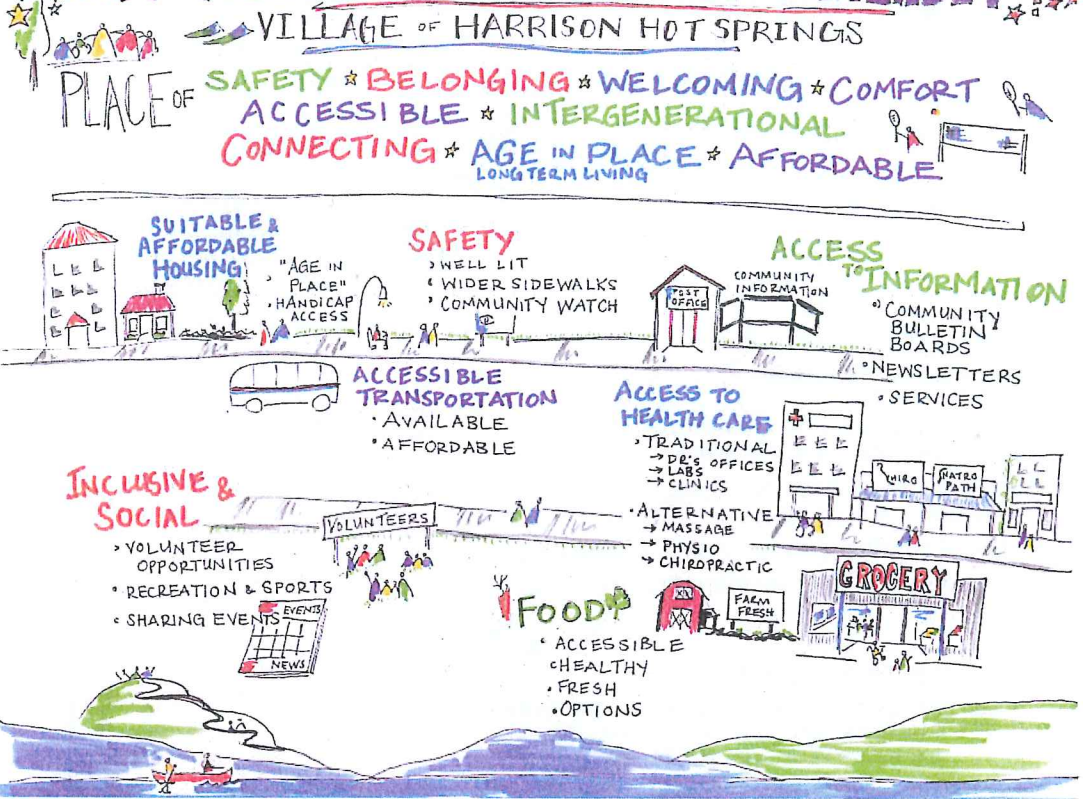 VILLAGE OF HARRISON HOT SPRINGS
PLACE OF
SAFETY ☆ BELONGING ☆ WELCOMING ☆ COMFORT
ACCESSIBLE ☆ INTERGENERATIONAL
CONNECTING ☆ AGE IN PLACE ☆ AFFORDABLE
LONG TERM LIVING
SUITABLE &
AFFORDABLE
HOUSING
"AGE IN
PLACE"
HANDICAP
ACCESS
SAFETY
WELL LIT
WIDER SIDEWALKS
COMMUNITY WATCH
POST
OFFICE
COMMUNITY
INFORMATION
ACCESS
TO INFORMATION
COMMUNITY
BULLETIN
BOARDS
NEWSLETTERS
SERVICES
ACCESSIBLE
TRANSPORTATION
• AVAILABLE
• AFFORDABLE
ACCESS TO
HEALTH CARE
• TRADITIONAL
→ DR'S OFFICES
→ LABS
→ CLINICS
• ALTERNATIVE
→ MASSAGE
→ PHYSIO
→ CHIROPRACTIC
CHIRO
NATRO
PATH
INCLUSIVE &
SOCIAL
VOLUNTEER
OPPORTUNITIES
• RECREATION & SPORTS
• SHARING EVENTS
VOLUNTEERS
EVENTS
NEWS
FOOD
• ACCESSIBLE
• HEALTHY
• FRESH
• OPTIONS
FARM
FRESH
GROCERY